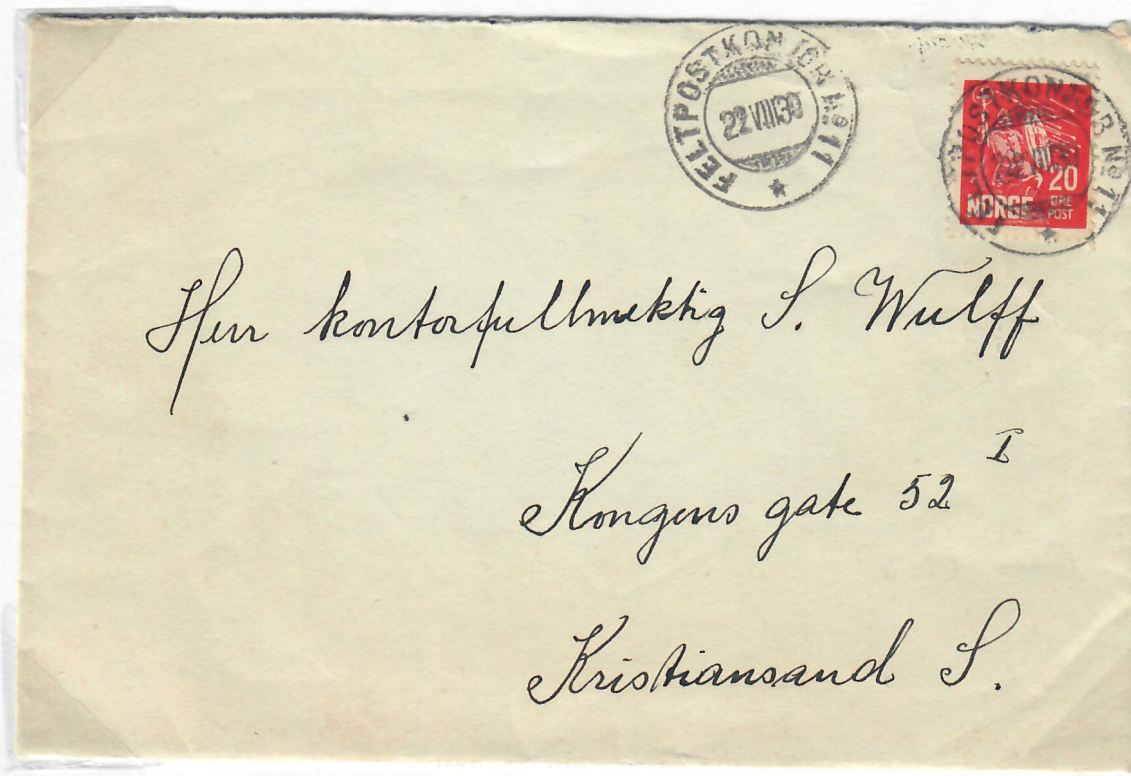 FELTPOSTKONTOR No 11
22 VIII 30
FELTPOSTKONTOR No 11
22 VIII 30
20
NORGE ØRE
POST
Herr kontorfullmektig S. Wulff
Kongens gate 52 I
Kristiansand S.